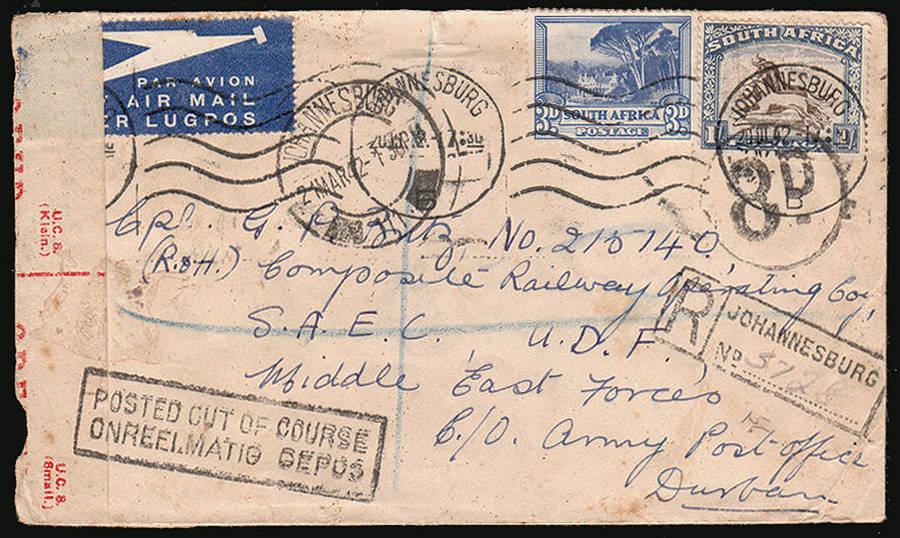 PAR AVION
AIR MAIL
R LUGPOS
SOUTH AFRICA
3D SOUTH AFRICA 3D
POSTAGE
1/- 1/-
JOHANNESBURG
21 MAR 42
JOHANNESBURG
JOHANNESBURG
B
8D
Cpl. G. P. No. 215140
(R.&H.) Composite Railway Operating Coy,
S.A.E.C. U.D.F.
Middle East Forces
C/O. Army Post office
Durban
R JOHANNESBURG
No
POSTED OUT OF COURSE
ONREELMATIG GEPOS
U.C. 8.
(Klein.)
U.C. 8.
(Small.)